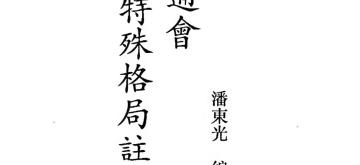 潘東光 編
通會
特殊格局註